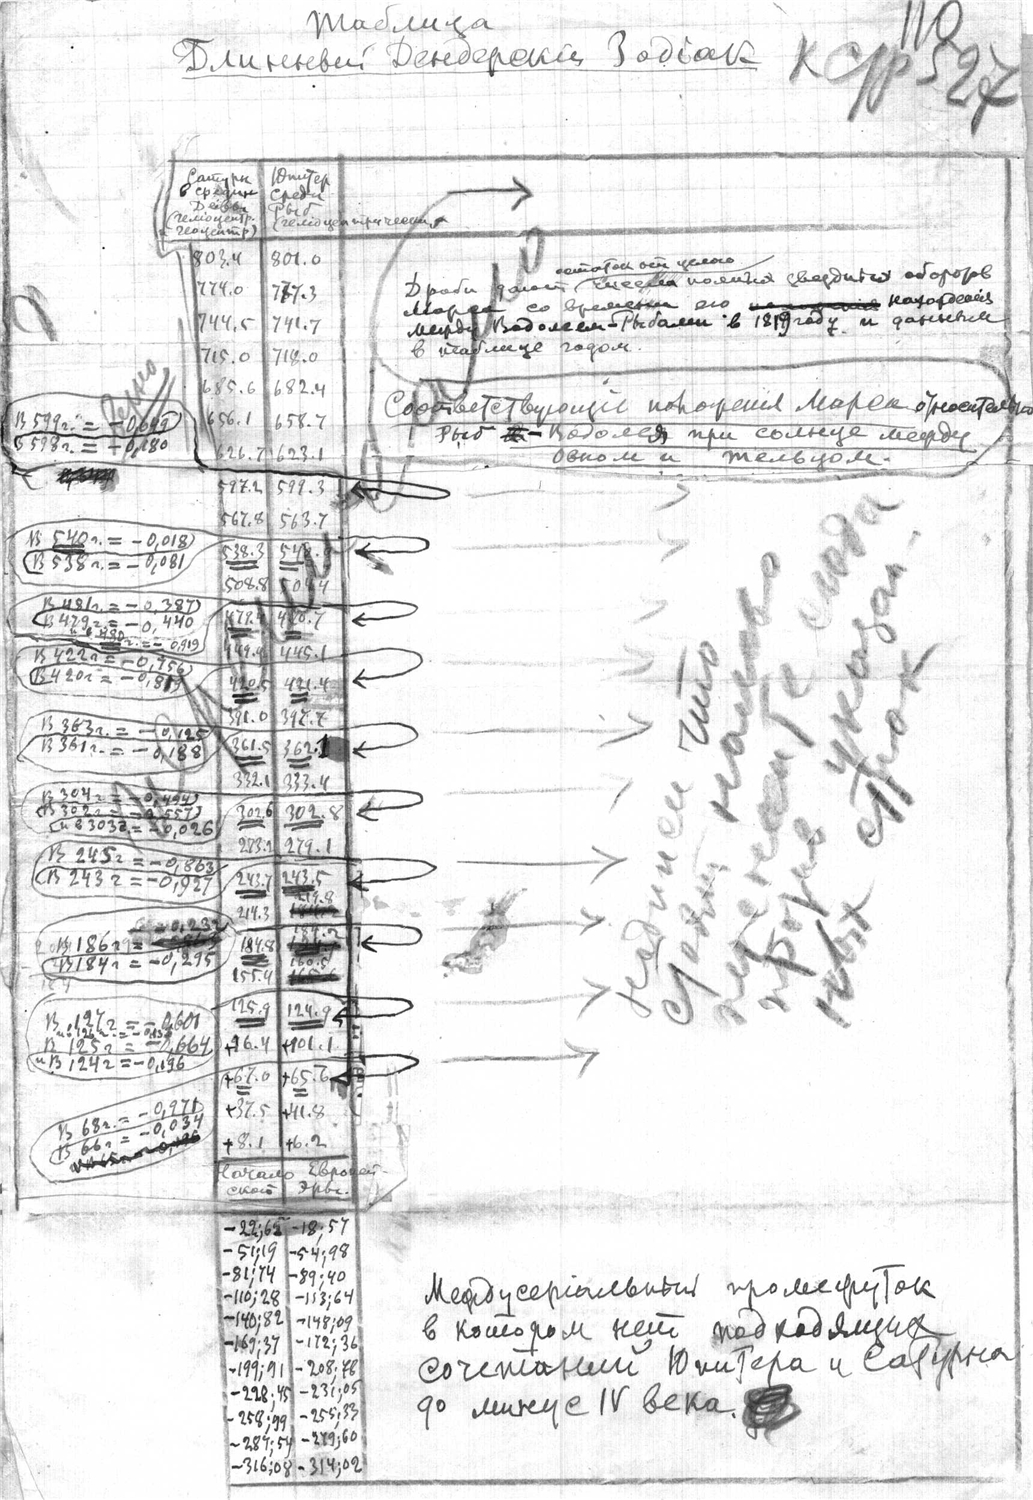 Таблица
Длинный Дендерский Зодіак
110
К стр 527
Сатурн в средин Девы (гелиоцентр. геоцентр)
Юпитер среди Рыб (гелиоцентрически
803.4 801.0
774.0 777.3
744.5 741.7
715.0 718.0
685.6 682.4
656.1 658.7
626.7 623.1
597.2 599.3
567.8 563.7
538.3
508.8
479.4
449.9 445.1
420.5 421.4
391.0 397.7
361.5 362.1
332.1 333.4
302.6 302.8
273.2 279.1
243.7 243.5
219.8
214.3
184.8
155.4 160.5
125.9 124.9
+96.4 +101.1
+67.0 +65.6
+37.5 +41.8
+8.1 +6.2
Начало Европей-
ской Эры.
-22;65 -18;57
-51;19 -54;98
-81;74 -89;40
-110;28 -113;64
-140;82 -148;09
-169;37 -172;36
-199;91 -208;78
-228;45 -231;05
-258;99 -255;33
-287;54 -279;60
-316;08 -314;02
Верно
В 599 г. = -0,699
В 598 г. = +0,180
В 540 г. = -0,018
В 538 г. = -0,081
В 481 г. = -0,387
В 479 г = -0,440
В 422 г = -0,756
В 420 г = -0,819
В 363 г = -0,125
В 361 г = -0,188
В 304 г = -0,494
В 302 г = -0,557
и в 303 г = -0,026
В 245 г = -0,863
В 243 г = -0,927
= 0,232
В 186 г =
В 184 г = -0,295
В 127 г = -0,601
В 125 г = -0,664
и В 124 г = -0,196
В 68 г. = -0,971
В 66 г = -0,034
остаток от целого
Дроби дают числа полных звездных оборотов
Марса со времени его нахождения
между Водолеем-Рыбами в 1819 году и данным
в таблице годом.
Соответствующие положения Марса относительно
Рыб - Водолея при солнце между
Овном и Тельцом.
надписи что
стоят налево
перенести сюда
против указан-
ных строк
Междусеріальный промежуток
в котором нет подходящих
сочетаний Юпитера и Сатурна
до минус IV века.